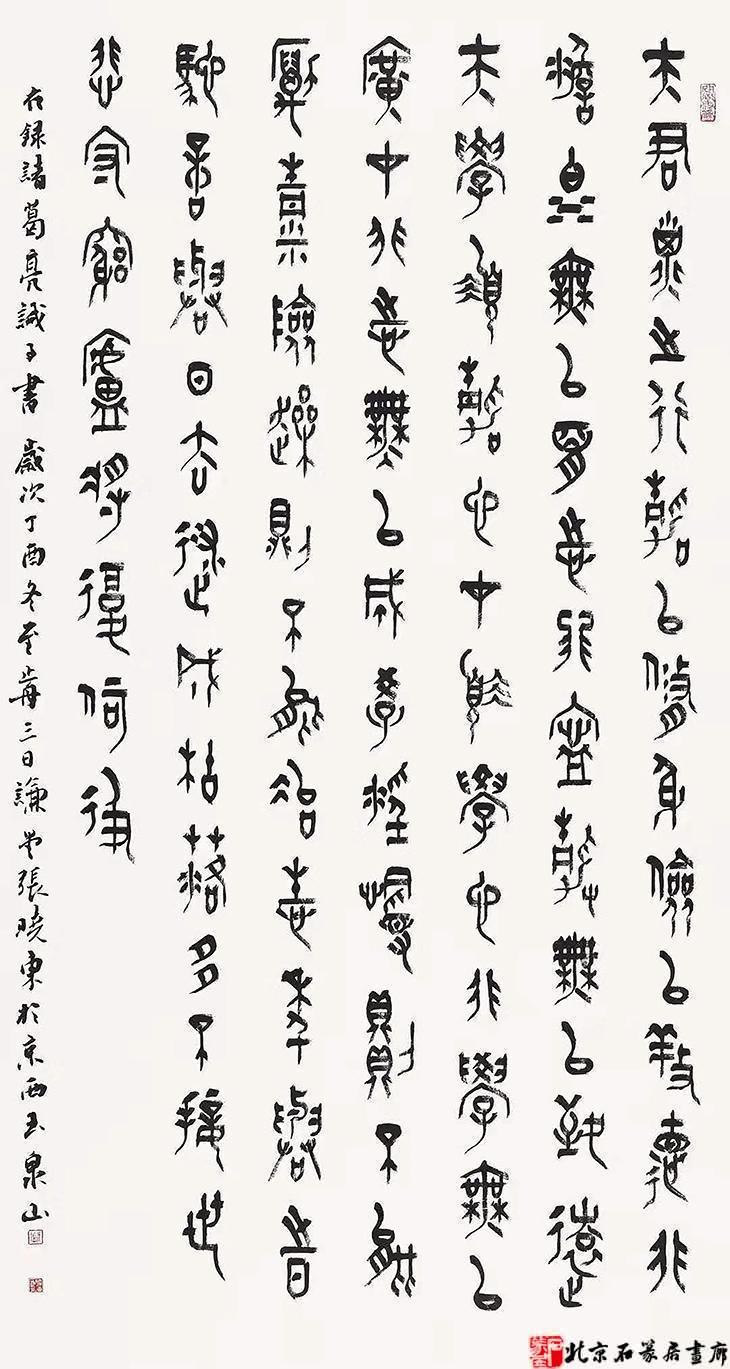 夫君子之行靜以脩身儉以養德非
澹泊無以明志非寧靜無以致遠
夫學須靜也才能學也非學無以
廣才非志無以成學淫慢則不能
勵精險躁則不能治性年與時
馳意與日去遂成枯落多不接世
悲守窮廬將復何及
右録諸葛亮誡子書 歲次丁酉冬至歬三日謙堂張曉東於京西玉泉山
北京石篆居畫廊